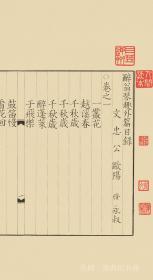 醉翁琴趣外篇目錄
文忠公歐陽脩永叔
卷之一
一叢花
越溪春
千秋歲
千秋歲
醉蓬萊
于飛樂
鼓笛慢
看花回